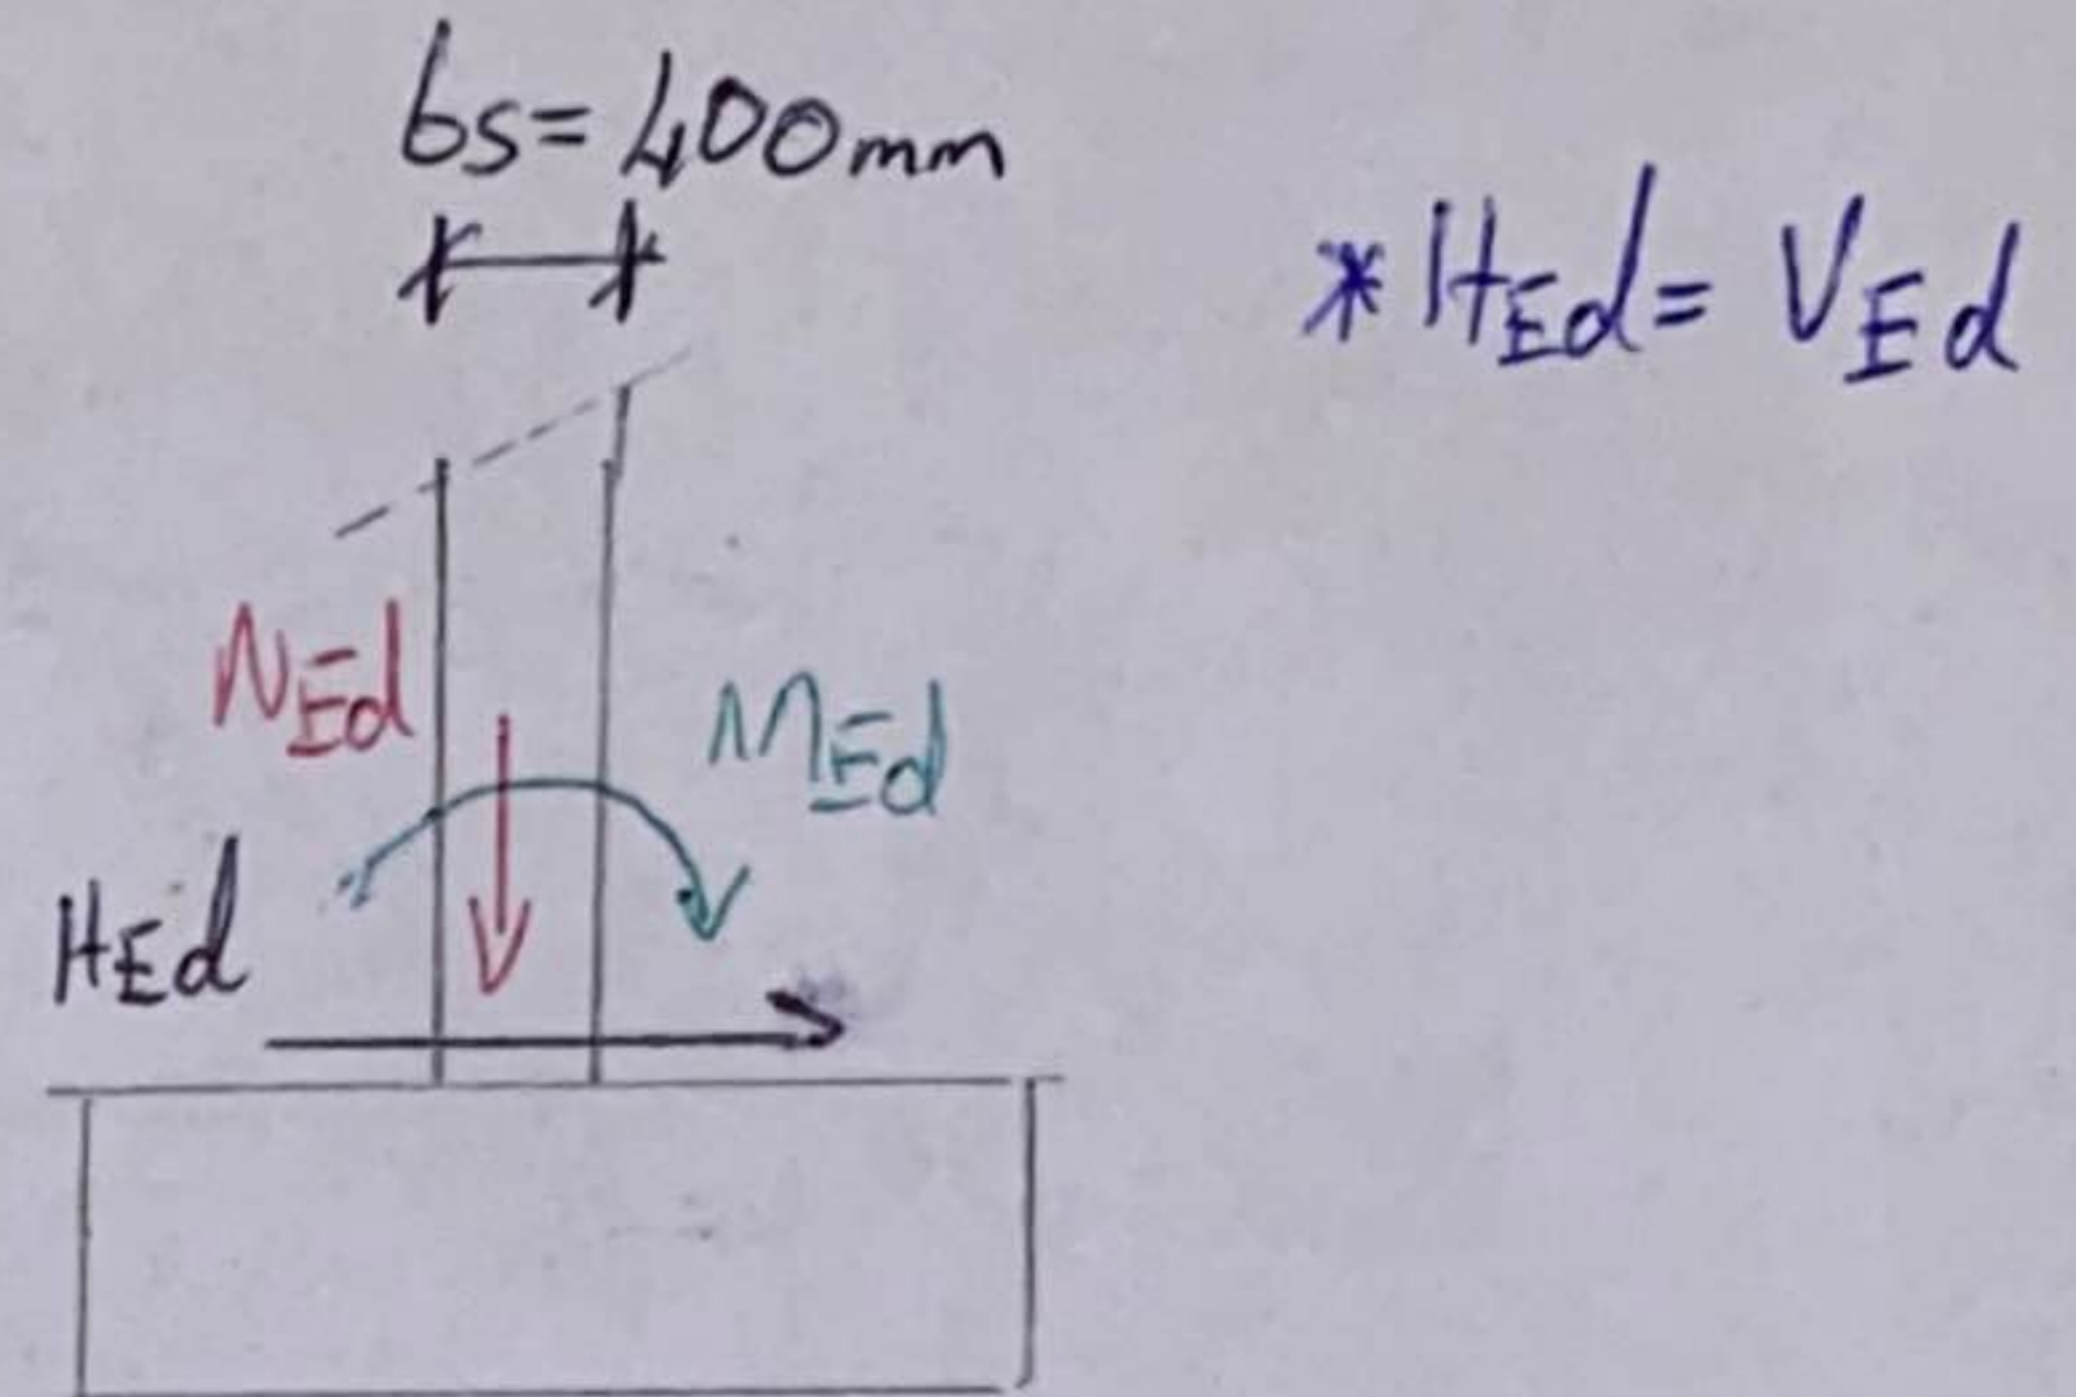 bs=400mm
*HEd= VEd
NEd
MEd
HEd